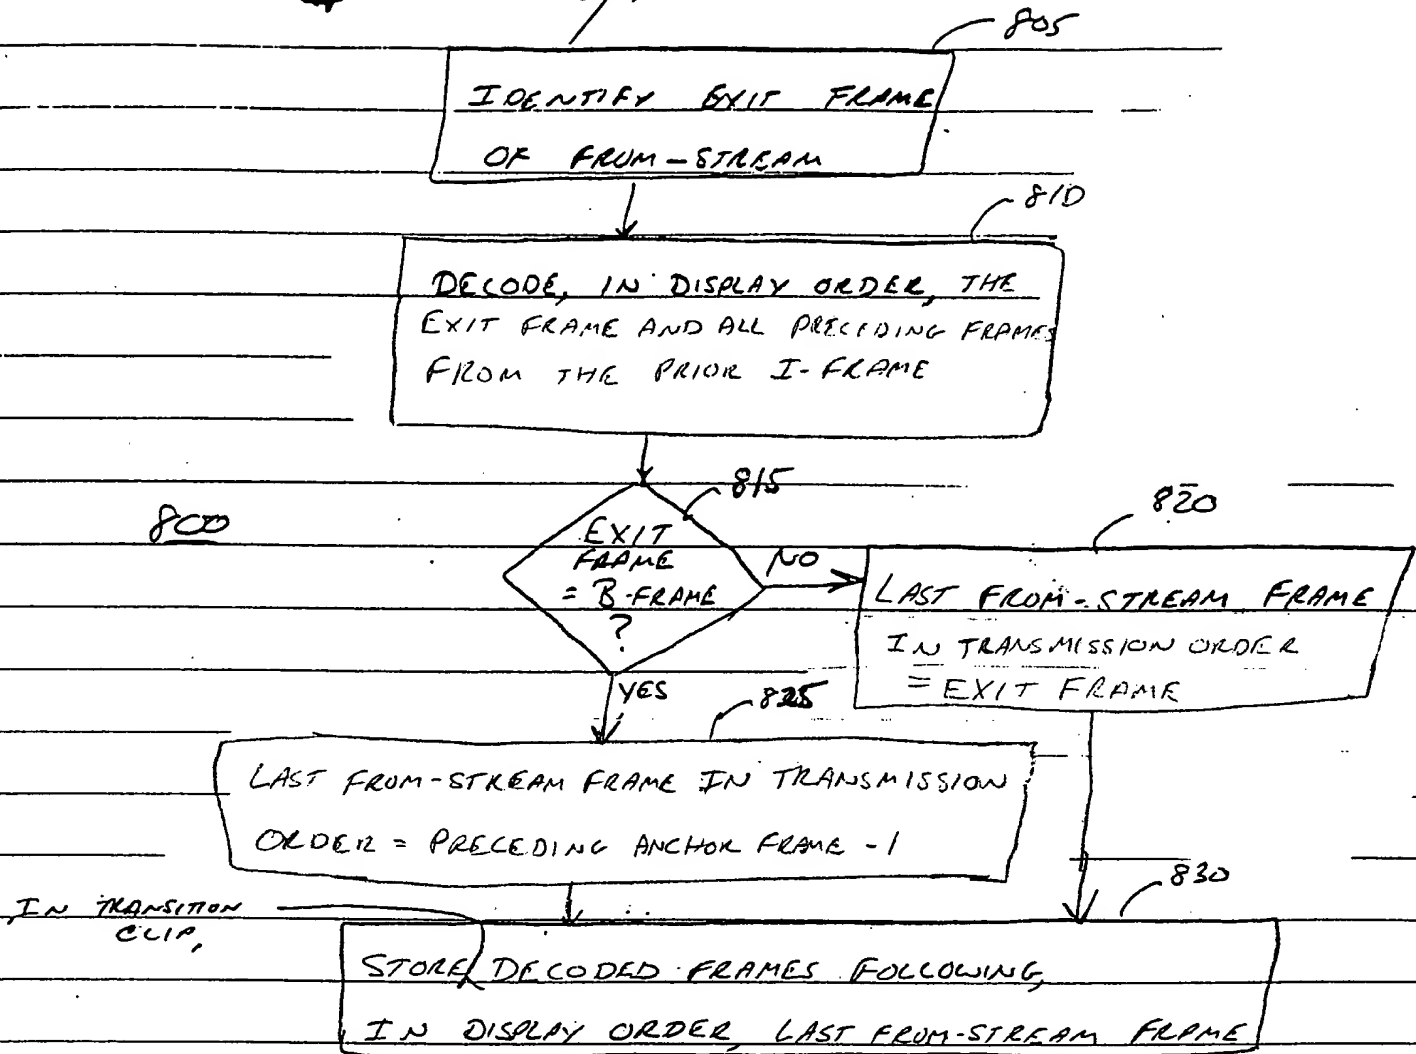 805
IDENTIFY EXIT FRAME
OF FROM-STREAM
810
DECODE, IN DISPLAY ORDER, THE
EXIT FRAME AND ALL PRECEDING FRAMES
FROM THE PRIOR I-FRAME
815
800
EXIT
FRAME
= B-FRAME
?
NO
820
LAST FROM-STREAM FRAME
IN TRANSMISSION ORDER
= EXIT FRAME
YES
825
LAST FROM-STREAM FRAME IN TRANSMISSION
ORDER = PRECEDING ANCHOR FRAME -1
830
IN TRANSITION
CLIP,
STORE DECODED FRAMES FOLLOWING,
IN DISPLAY ORDER, LAST FROM-STREAM FRAME